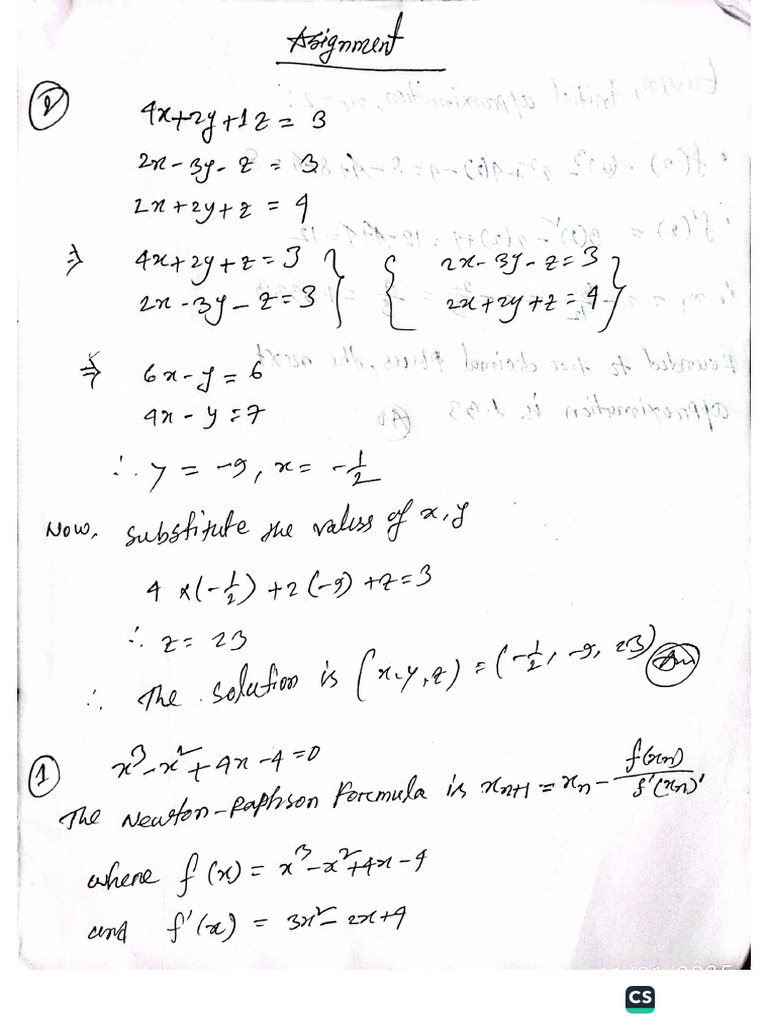 Assignment
②
4x+2y+1z = 3
2x-3y-z = 3
2x+2y+z = 4
⇒ 4x+2y+z=3 } { 2x-3y-z=3 }
2x-3y-z=3 } { 2x+2y+z=4 }
⇒ 6x-y=6
4x-y=7
∴ y = -9, x = -1/2
Now, substitute the values of x, y
4 x(-1/2) +2(-9) +z=3
∴ z = 23
∴ The solution is (x,y,z) = (-1/2, -9, 23) Ans
① x³-x²+4x-4=0
The Newton-Raphson Formula is xn+1 = xn - f(xn)/f'(xn)'
where f(x) = x³-x²+4x-4
and f'(x) = 3x²-2x+4
CS